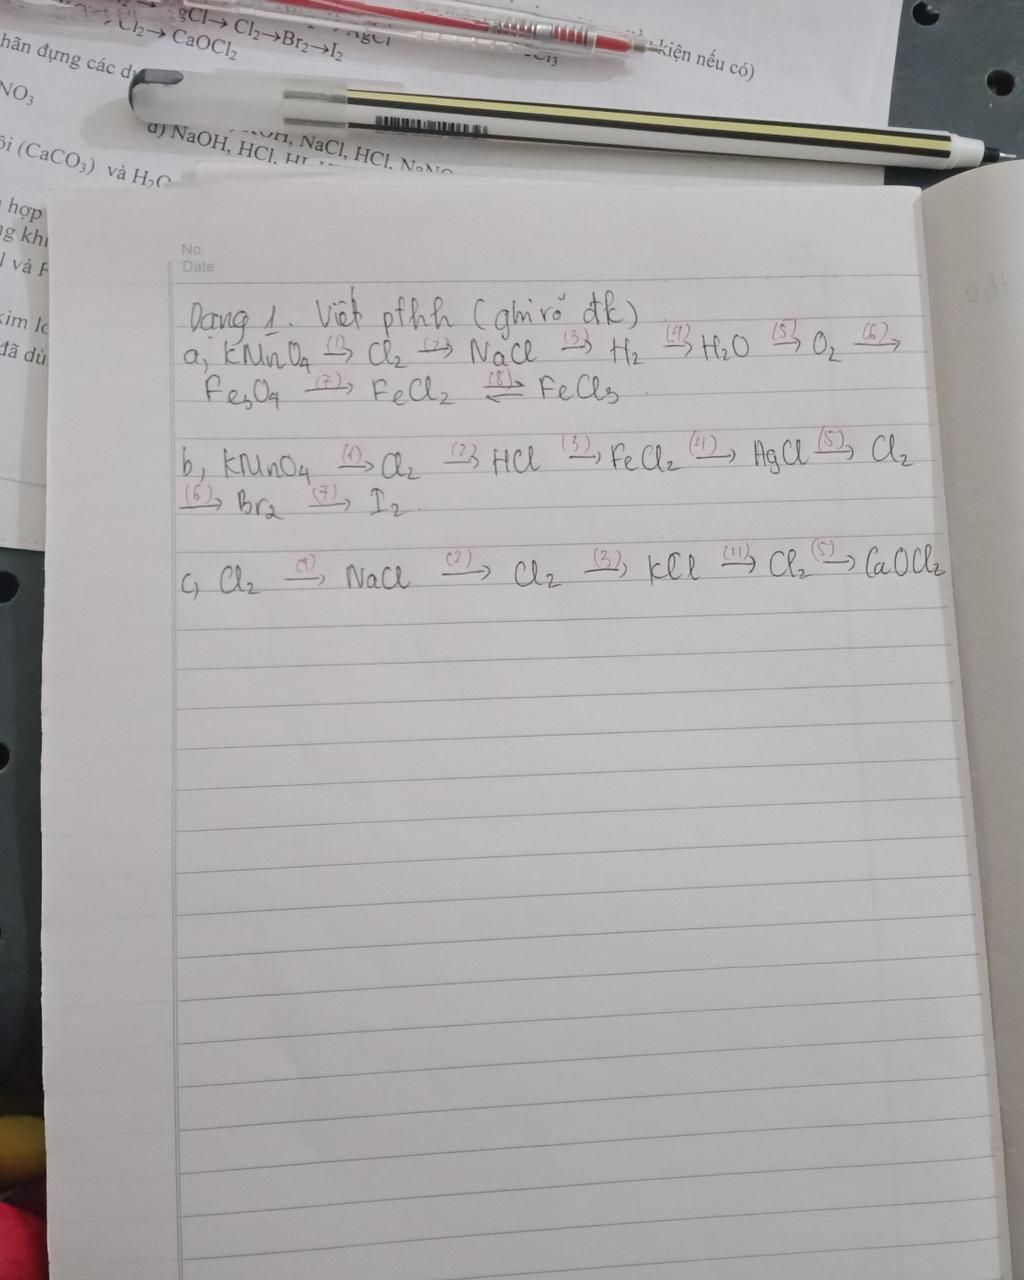 gCl→ Cl₂→Br₂→I₂
Cl₂→ CaOCl₂
kiện nếu có)
hãn đựng các d
NO₃
NaCl, HCl,
d) NaOH, HCl,
ôi (CaCO₃) và H₂O
hợp
ng khí
l và F
kim lo
đã dù
No.
Date
Dạng 1. Viết pthh (ghi rõ đk)
a, KMnO₄ (1)→ Cl₂ (2)→ NaCl (3)→ H₂ (4)→ H₂O (5)→ O₂ (6)→
Fe₃O₄ (7)→ FeCl₂ (8)⇌ FeCl₃
b, KMnO₄ (1)→ Cl₂ (2)→ HCl (3)→ FeCl₂ (4)→ AgCl (5)→ Cl₂
(6)→ Br₂ (7)→ I₂
c, Cl₂ (1)→ NaCl (2)→ Cl₂ (3)→ KCl (4)→ Cl₂ (5)→ CaOCl₂